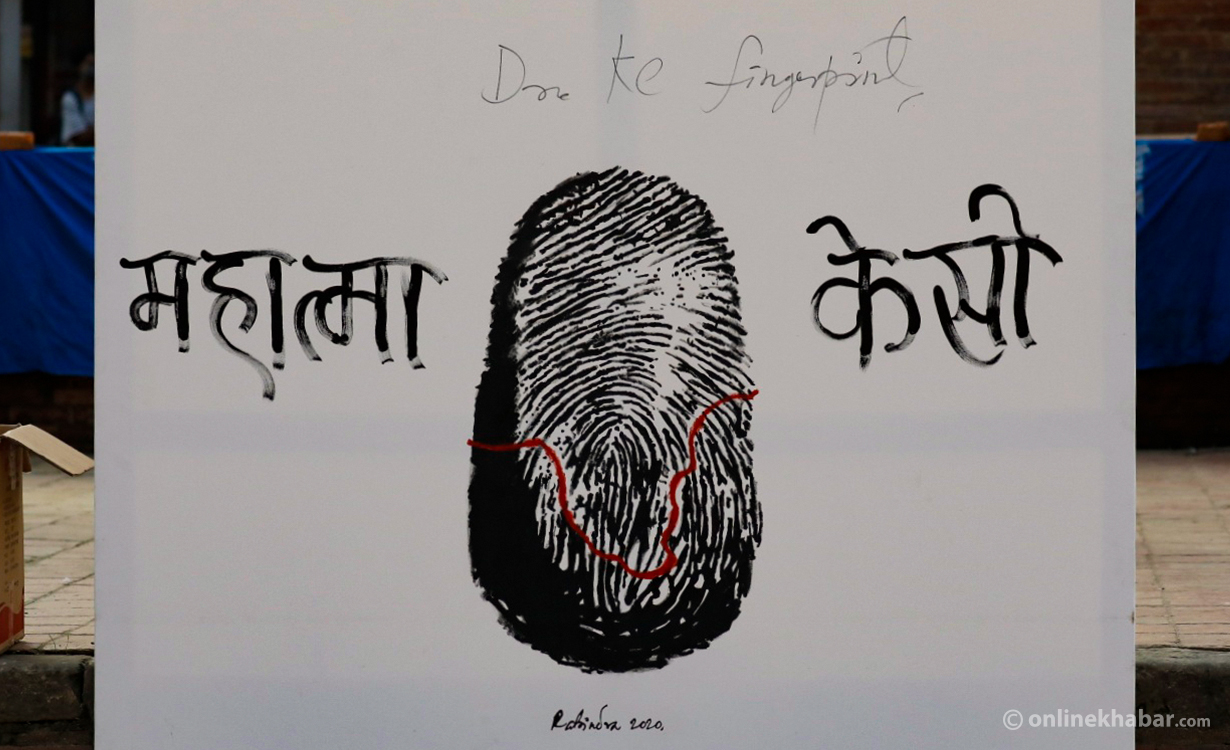 Don KC fingerprint,
महात्मा केसी
Rabindra 2020.
© onlinekhabar.com